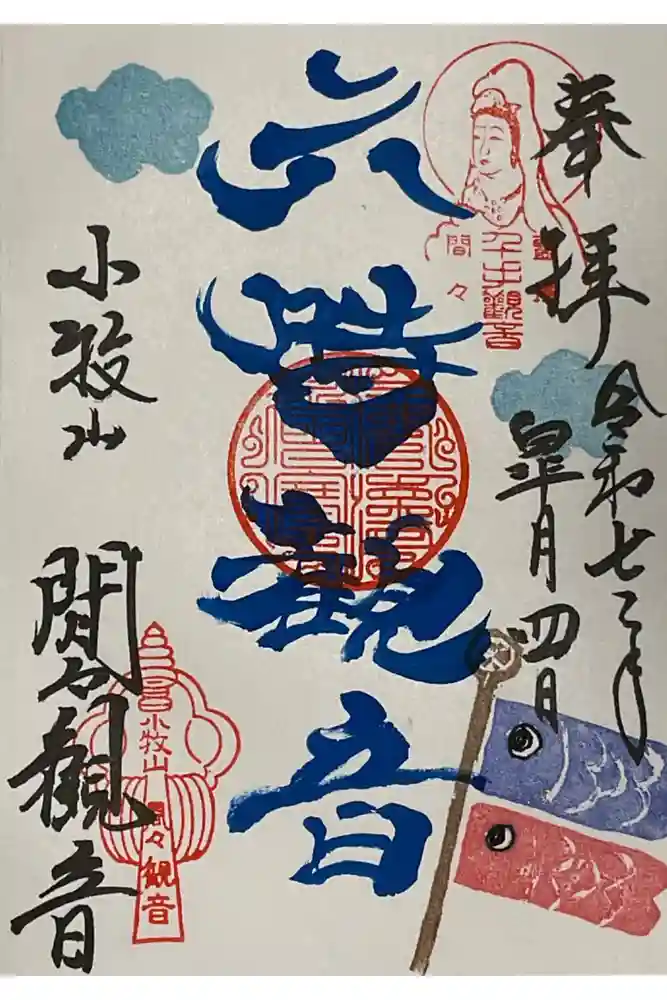 奉拝
令和七年
皐月四日
六臂観音
小牧山
間々観音
千手観音
間々
小牧山
間々観音